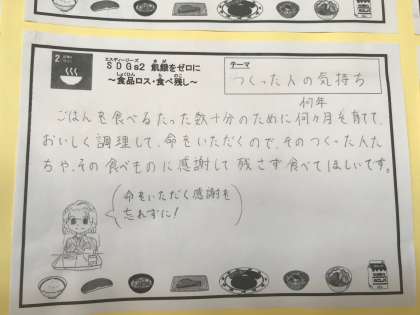 2
エスディージーズ
SDGs2 飢餓をゼロに
～食品ロス・食べ残し～
テーマ
つくった人の気持ち
何年
ごはんを食べるたった数十分のために何ヶ月も育てて、
おいしく調理して、命をいただくので、そのつくった人た
ちや、その食べものに感謝して残さず食べてほしいです。
命をいただく感謝を
忘れずに!